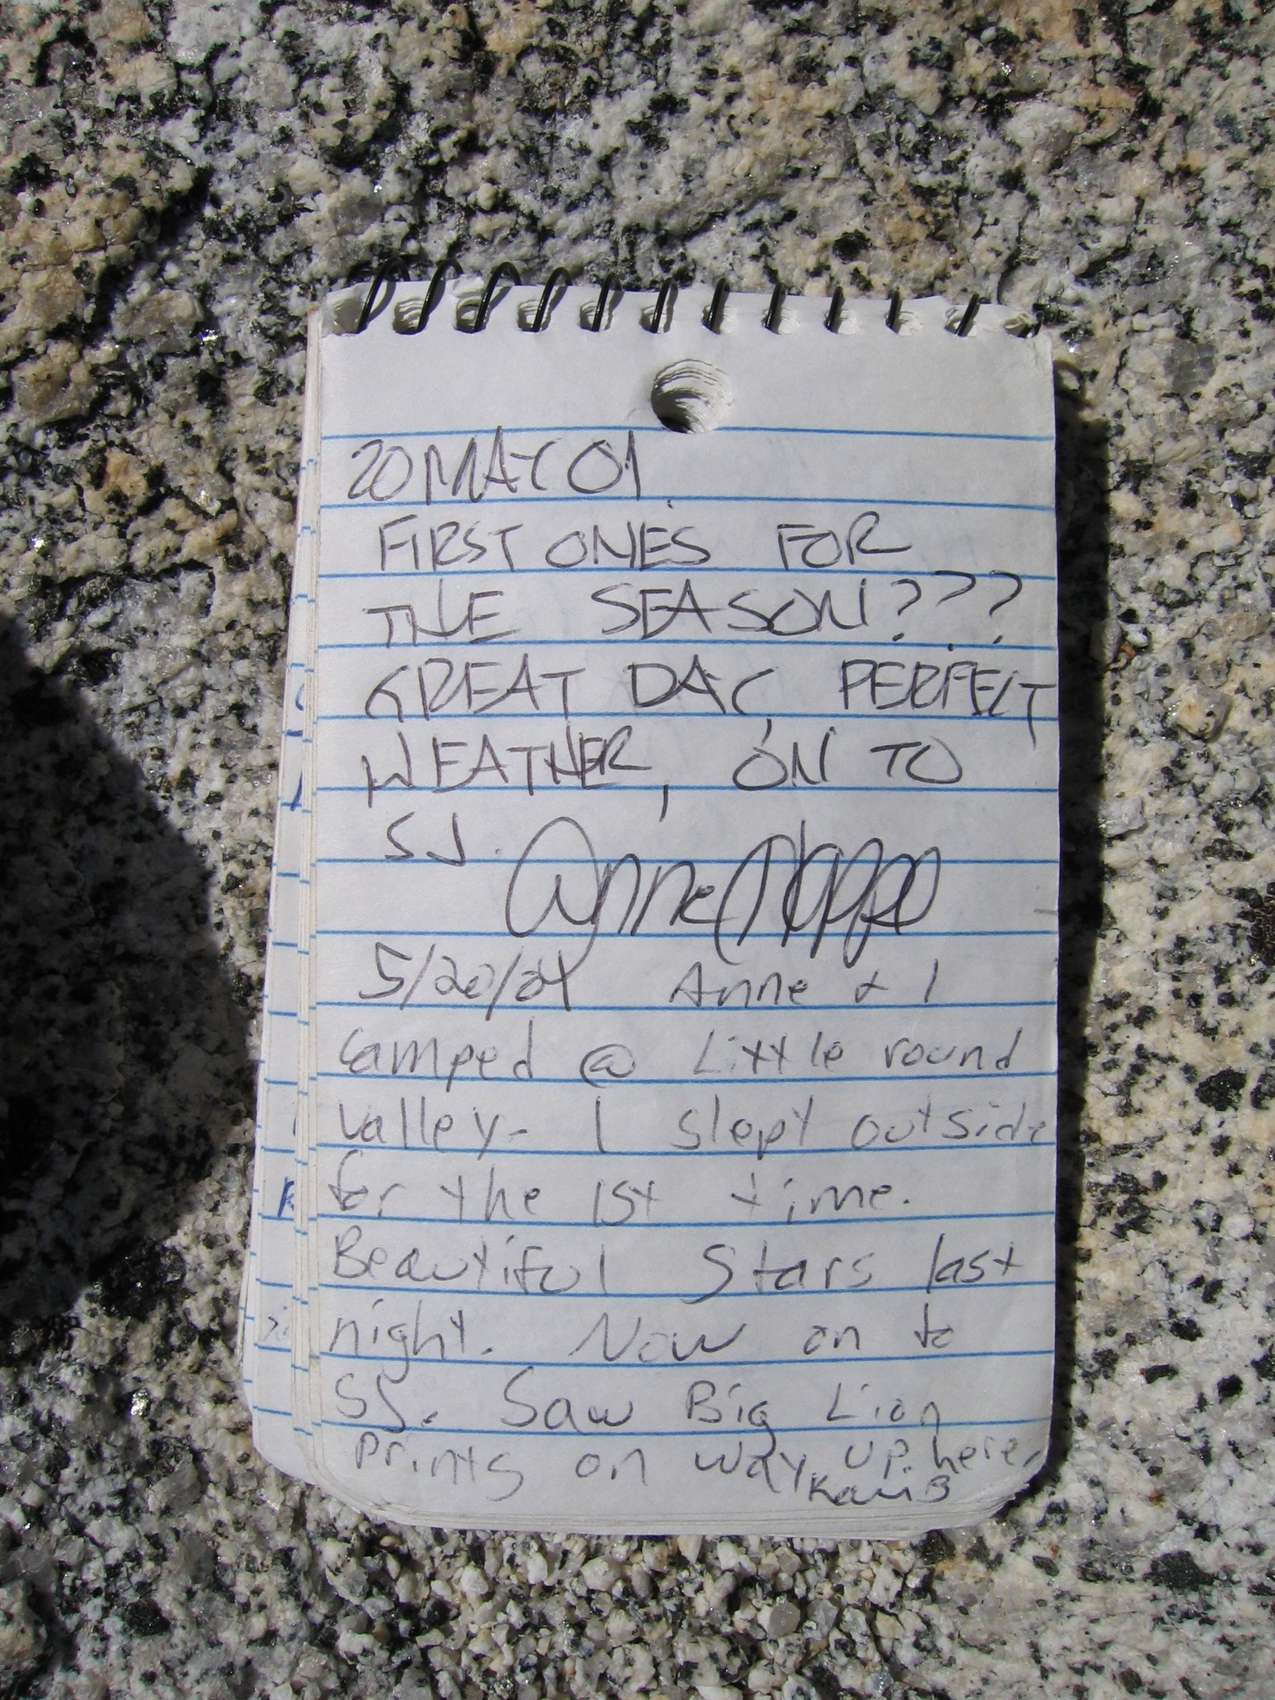 20 MAY 01
FIRST ONES FOR
THE SEASON???
GREAT DAY, PERFECT
WEATHER, ON TO
SJ. Anne
5/20/01 Anne & I
camped @ Little round
valley- I slept outside
for the 1st time.
Beautiful Stars last
night. Now on to
SJ. Saw Big Lion
prints on way up here.